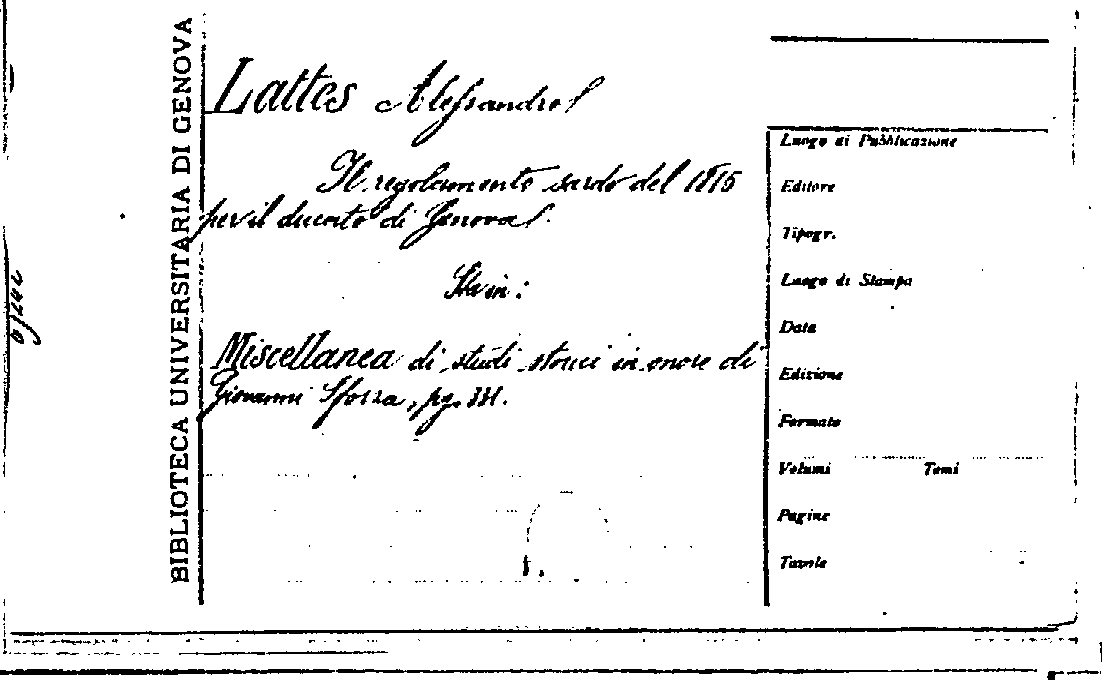 BIBLIOTECA UNIVERSITARIA DI GENOVA
Lattes Alessandro
Il regolamento sardo del 1815
per il ducato di Genova.
Sta in:
Miscellanea di studi storici in onore di
Giovanni Sforza, pg.
Luogo di Pubblicazione
Editore
Tipogr.
Luogo di Stampa
Data
Edizione
Formato
Volumi Tomi
Pagine
Tavole